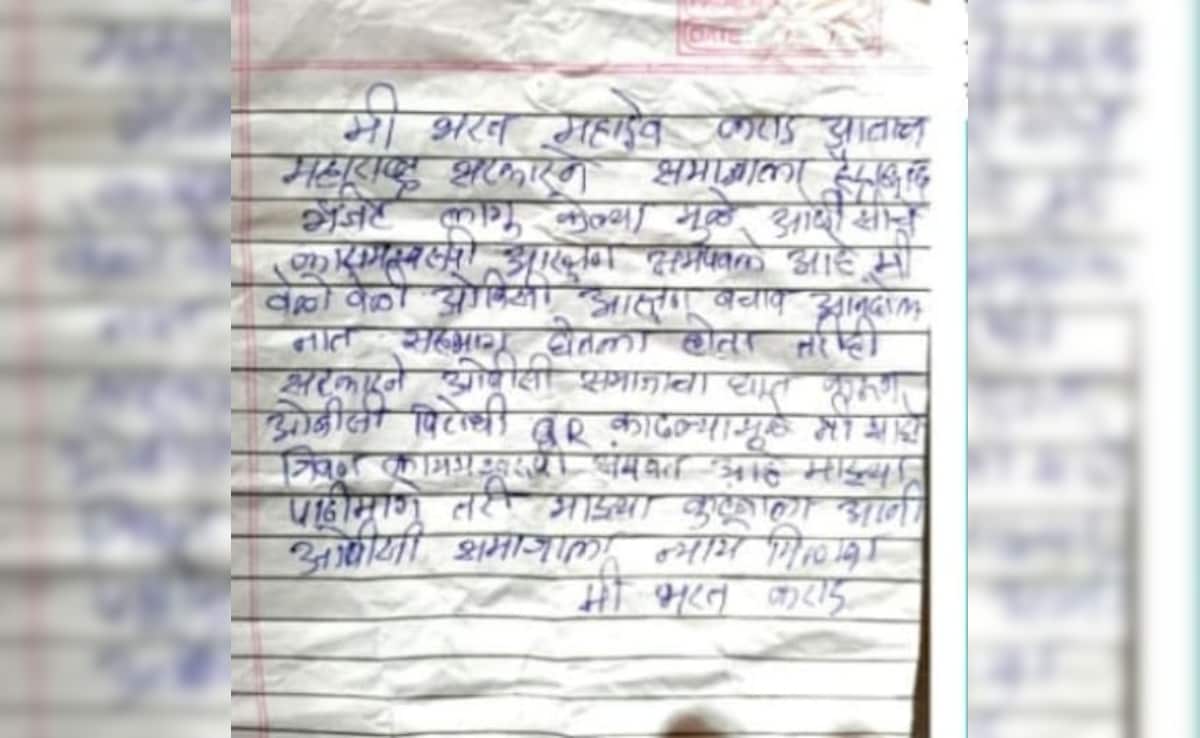 DATE
मी भरत महादेव कराड आताच
महाराष्ट्र सरकारने समाजाला हैद्राबाद
गॅजेट लागु केल्या मुळे ओबीसीचे
कायमस्वरूपी आरक्षण संपवले आहे मी
वेळो वेळी ओबिसी आरक्षण बचाव आनदोल
नात सहभाग घेतला होता तरीही
सरकारने ओबीसी समाजाचा घात करून
ओबीसी विरोधी GR काढल्यामूळे मी माझे
जिवन कायमस्वरूपी संपवत आहे माझ्या
पाठीमागे तरी माझ्या कुटूंबाला आनी
ओबीसी समाजाला न्याय मिळावा
मी भरत कराड